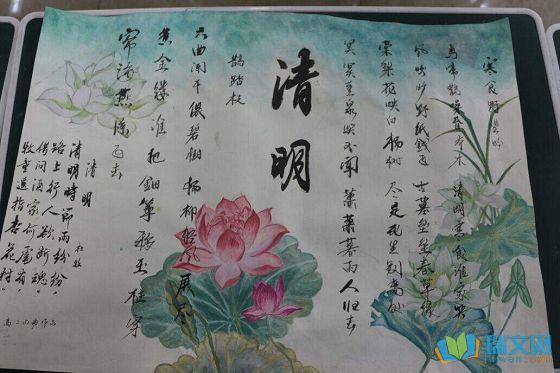 寒食野望吟
乌啼鹊噪昏乔木 清明寒食谁家哭
风吹旷野纸钱飞 古墓垒垒春草绿
棠梨花映白杨树 尽是死生别离处
冥冥重泉哭不闻 萧萧暮雨人归去
清明
鹊踏枝
六曲阑干偎碧树 杨柳风 展尽
黄金缕 谁把钿筝移玉柱 穿
帘海燕 去
清明 杜牧
清明时节雨纷纷，
路上行人欲断魂。
借问酒家何处有，
牧童遥指杏花村。
高二 作品
瑞文网